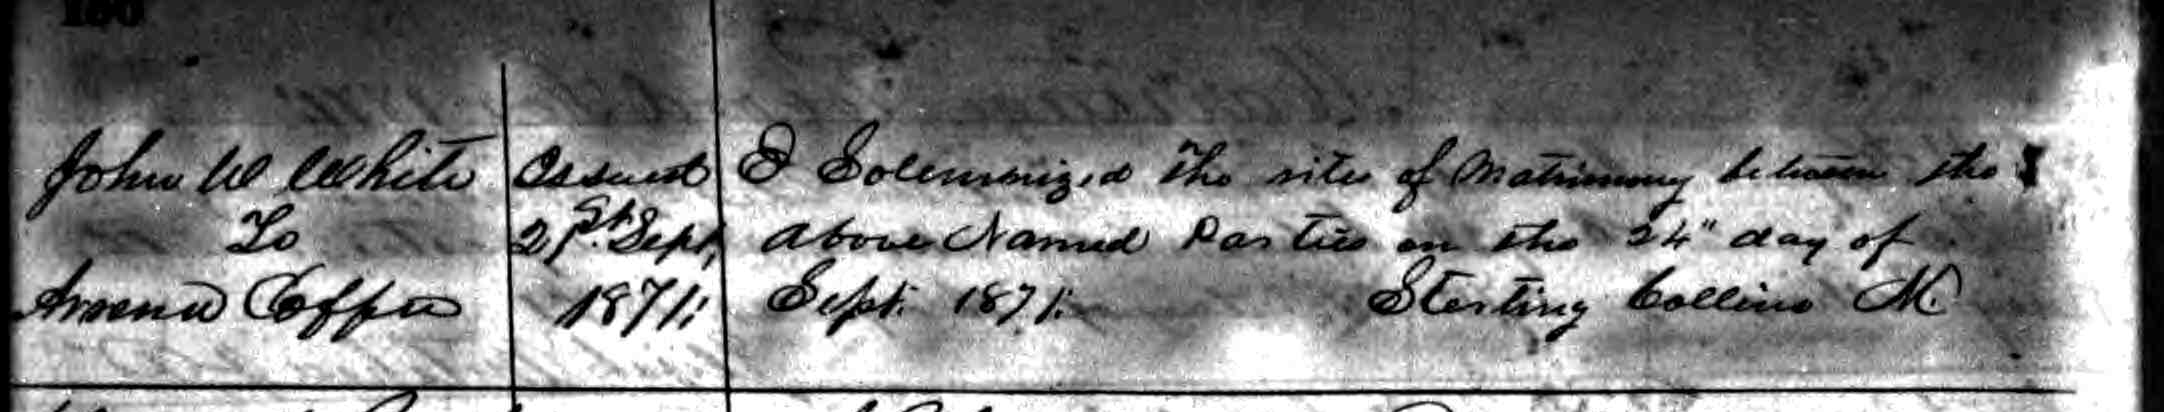 150
John W White
To
Epps
Issued
21st. Sept,
1871.
I Solemnized the rites of Matrimony between the
above Named Parties on the 24" day of
Sept. 1871. Sterling Collins M.